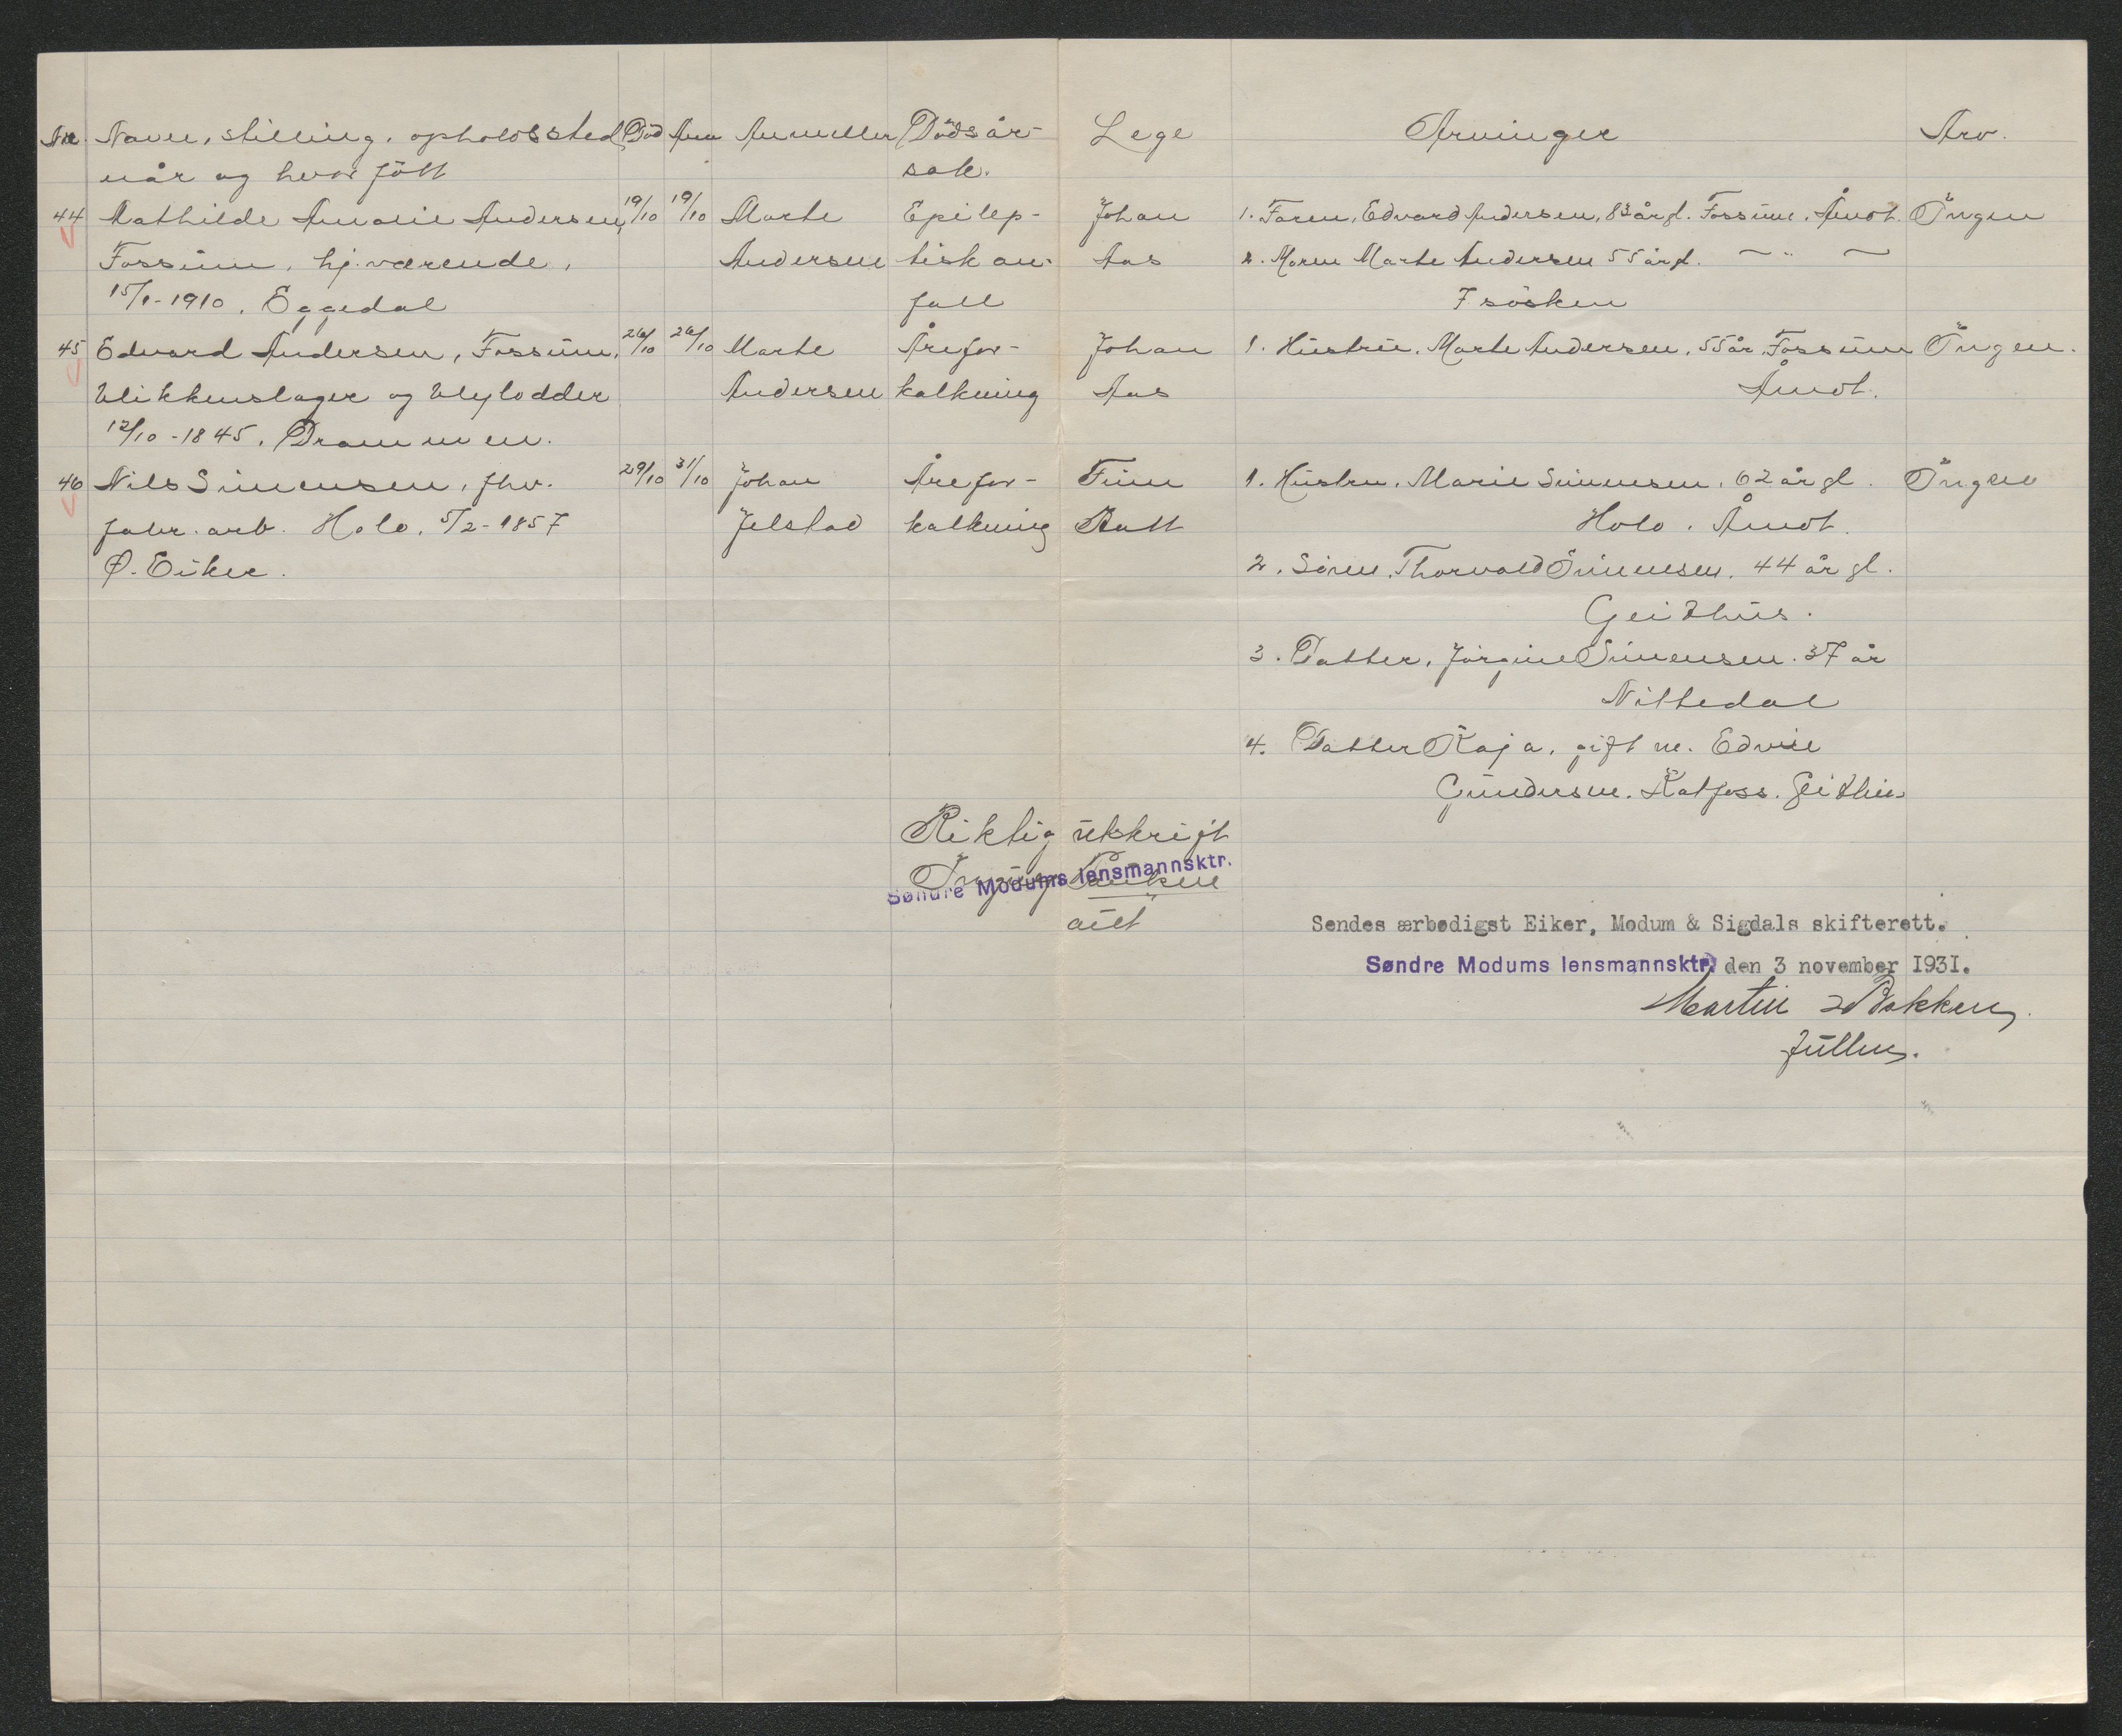 Nr. Navn, stilling, opholdssted Död Anm Anmelder Dödsår- Lege Arvinger Arv.
når og hvor fött sak.
44 Mathilde Amalie Andersen, 19/10 19/10 Marte Epilep- Johan 1. Faren, Edvard Andersen, 83 årgl. Fossum. Åmot. Ingen
Fossum, hj. værende, Andersen tisk an- Aas 2. Moren Marte Andersen 55 årgl. — „ —
15/1-1910. Eggedal fall 7 søsken
45 Edvard Andersen, Fossum, 26/10 26/10 Marte Årefor- Johan 1. Hustru, Marte Andersen, 55 år. Fossum Ingen.
Blikkenslager og Blylodder Andersen kalkning Aas Åmot.
12/10-1845. Drammen.
46 Nils Simensen, fhv. 29/10 31/10 Johan Årefor- Finn 1. Hustru, Marie Simensen, 62 år gl. Ingen
fabr. arb. Holo. 5/2-1857 Jelstad kalkning Holo. Åmot.
Ø. Eiker. 2. Sönn, Thorvald Simensen, 44 år gl.
Geithus.
3. Datter, Jörgine Simensen. 37 år
Nittedal
4. Datter Kaja, gift m. Edvin
Gundersen. Katfoss. Geithus
Riktig utskrift
Søndre Modums lensmannsktr.
Sendes ærbødigst Eiker, Modum & Sigdals skifterett.
Søndre Modums lensmannsktr. den 3 november 1931.
Martin Bakken
fullm.